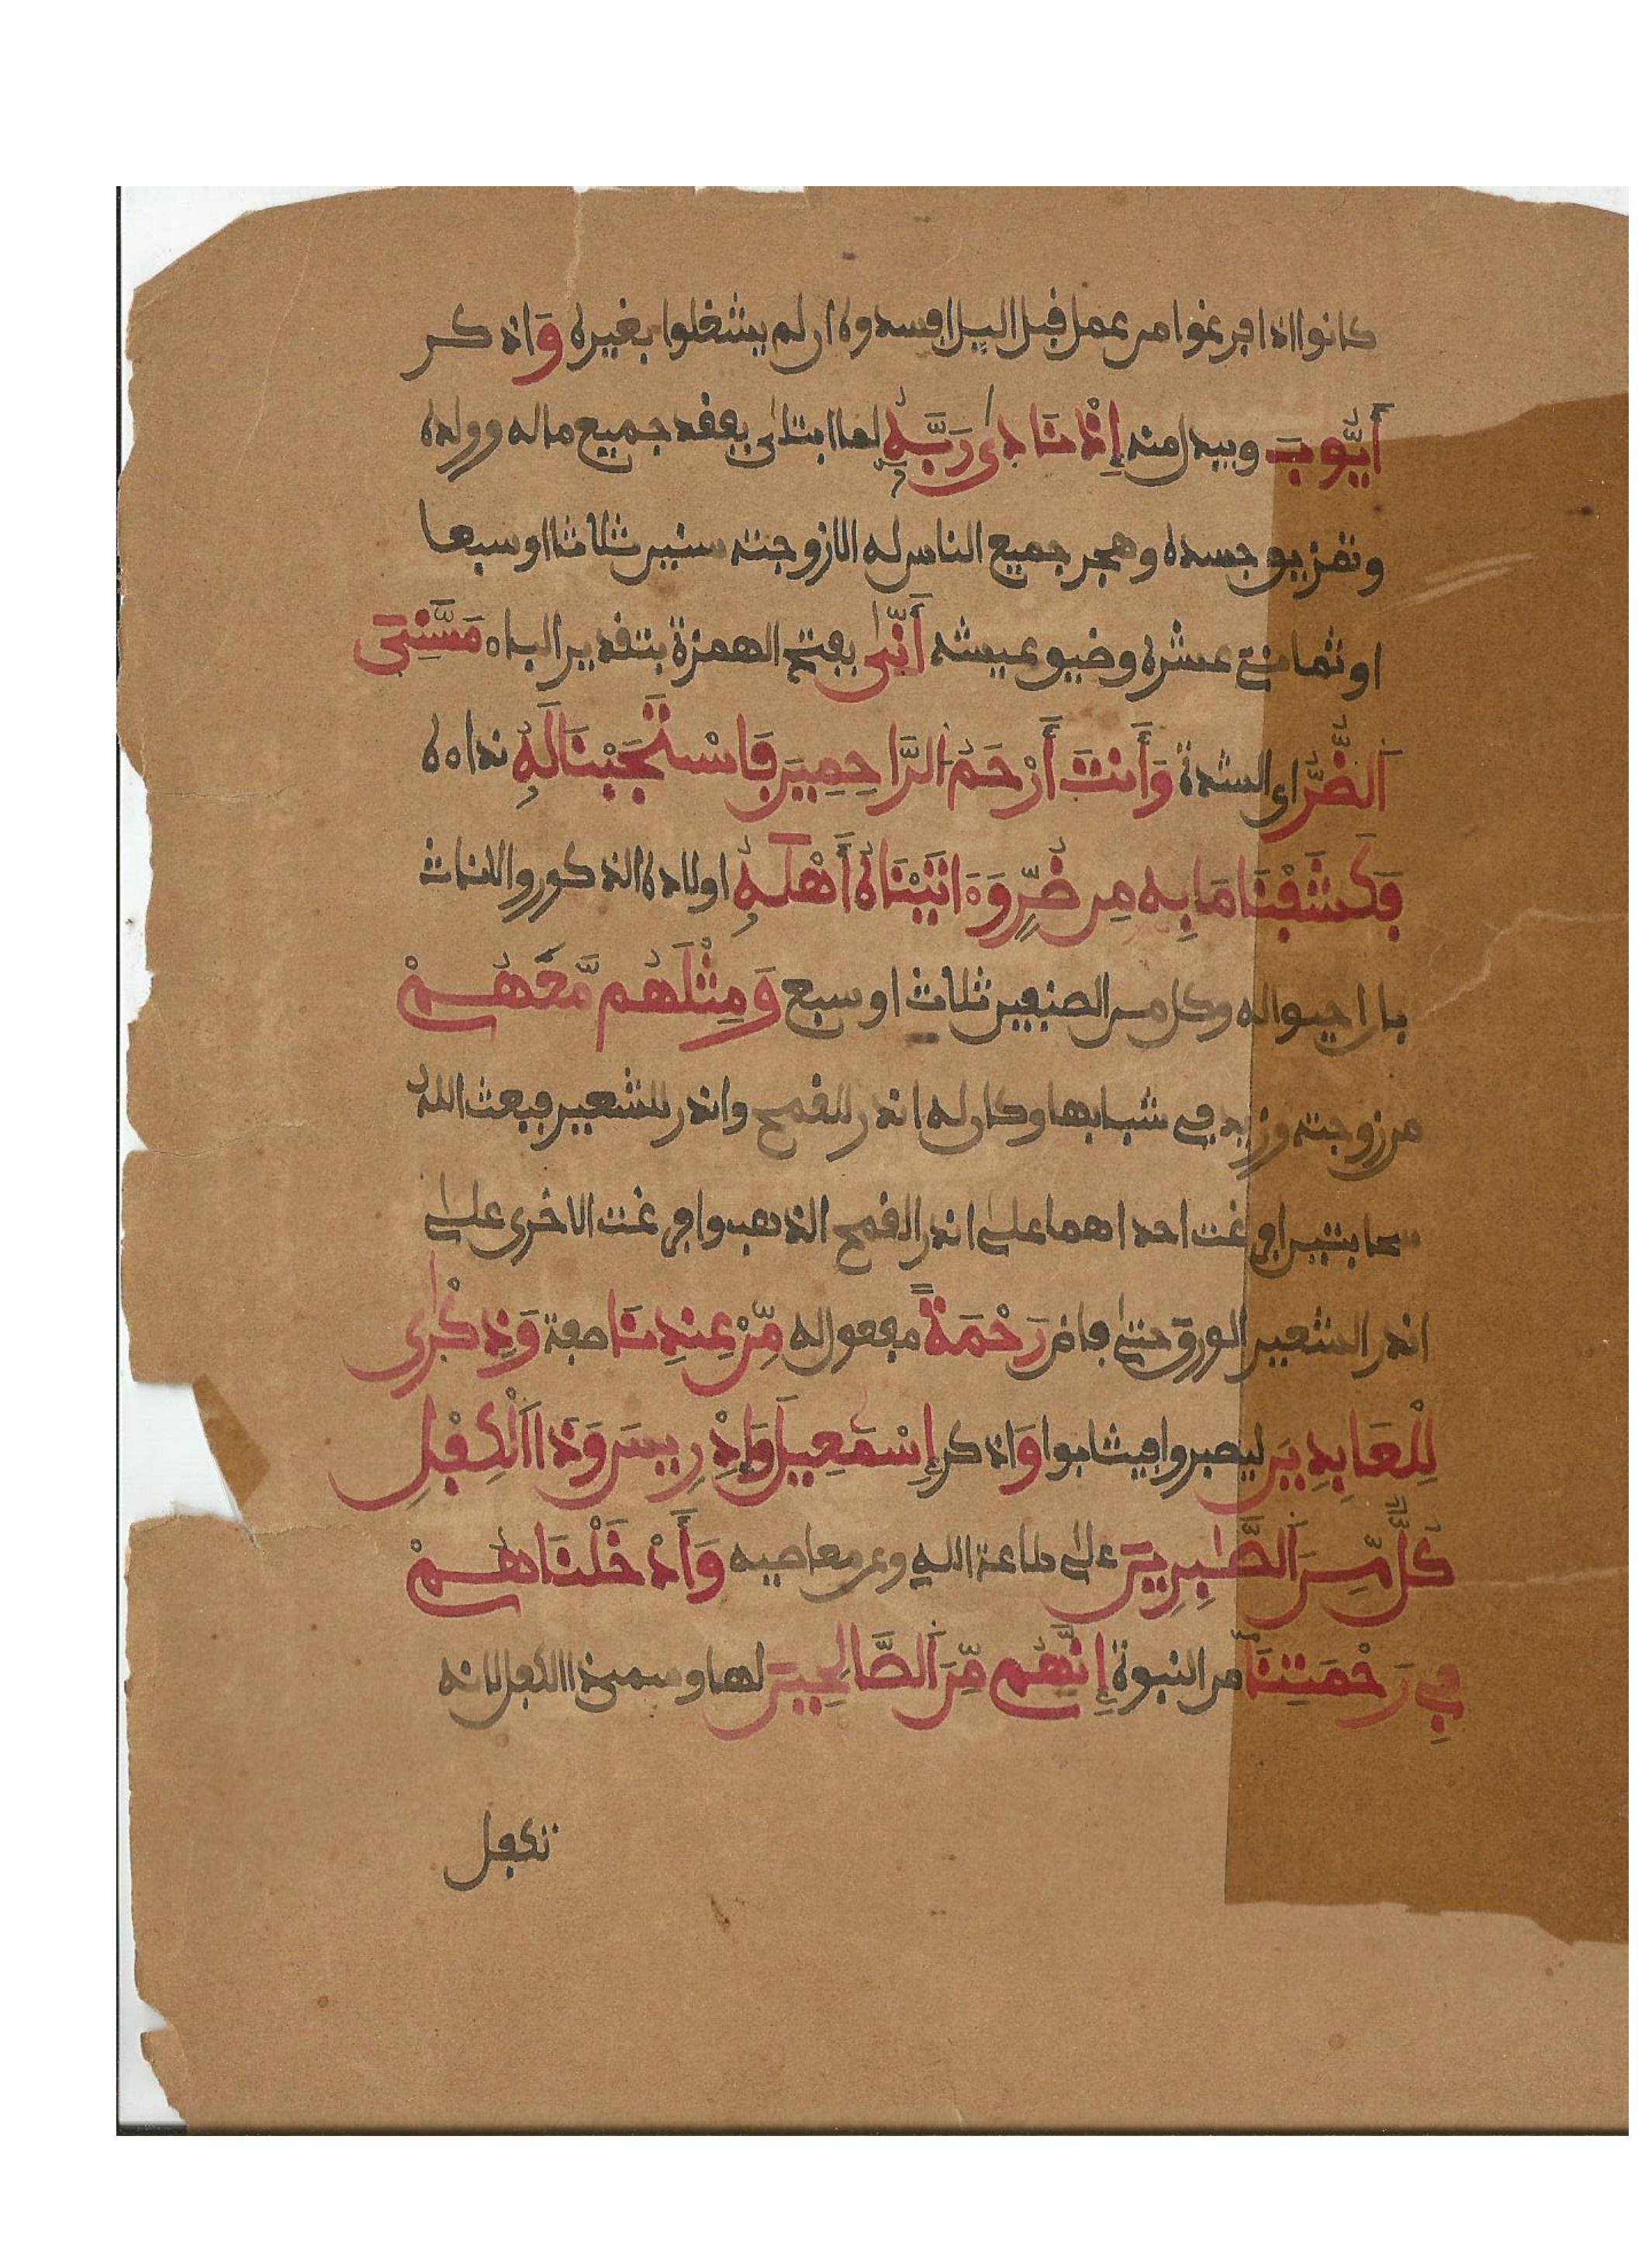 كانوا اذا فرغوا من عمل قبل اليل افسدوه ان لم يشغلوا بغيره وَاذكر
أَيُّوبَ ويبدل منه إِذْ نَادىٰ رَبَّهُ لما ابتلى بفقد جميع ماله وولده
وتمزيق جسده وهجر جميع الناس له الا زوجته سنين ثلاثا او سبعا
او ثمانى عشره وضيق عيشه أَنِّى بفتح الهمزة بتقدير الباء مَسَّنِىَ
اَلضُّرُّ اى الشدة وَأَنتَ أَرْحَمُ اَلرَّاحِمِينَ فَاسْتَجَبْنَا لَهُ نداءه
فَكَشَفْنَا مَا بِهِ مِن ضُرٍّ وَءَاتَيْنَاهُ أَهْلَهُ اولاده الذكور والانات
بان احيوا له وكل من الصنفين ثلاث او سبع وَمِثْلَهُم مَّعَهُمْ
من زوجته وزيد في شبابها وكان له اندر للقمح واندر للشعير فبعث الله
سحابتين افرغت احداهما على اندر القمح الذهب وافرغت الاخرى على
اندر الشعير الورق حتى فاض رَحْمَةً مفعول له مِّنْ عِندِنَا صفة وَذِكْرَىٰ
لِلْعَابِدِينَ ليصبروا فيثابوا وَاذكر إِسْمَعِيلَ وَإِدْرِيسَ وَذَا اَلْكِفْلِ
كُلٌّ مِّنَ اَلصَّٰبِرِينَ على طاعة الله وعن معاصيه وَأَدْخَلْنَاهُمْ
فِي رَحْمَتِنَا من النبوة إِنَّهُم مِّنَ اَلصَّالِحِينَ لها وسمى ذا الكفل لانه
تكفل